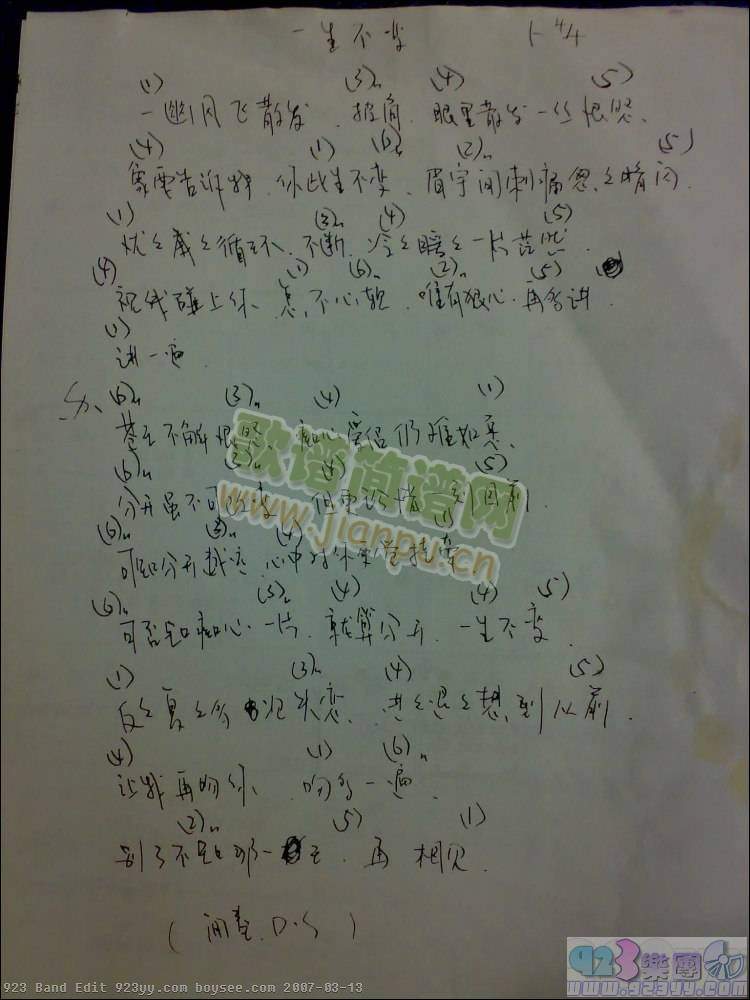 一生不变 1- 4/4
(1) (3)m (4) (5)
一幽风飞散发 披肩 眼里散发一丝恨怨、
(4) (1) (6)m (2)m (5)
象要告诉我 你此生不变、眉宇间刺痛忽々暗闪.
(1) (3)m (4) (5)
忧々戚々循环、不断、冷々暖々一片茫然.
(4) (1) (6)m (2)m (5)
视线碰上你、怎不心软、唯有狠心 再多讲.
(1)
讲一遍
(6)m (3)m (4) (1)
苍天不解恨怨、痴心爱侣仍难如愿、
(6)m (3)m (4) (5)
分开虽不可改变 但更珍惜一刻目前.
(6)m (3)m (4) (1)
可知分开越远 心中对你更觉挂牵
(6)m (3)m (4) (4) (5)
可否知痴心一片、就算分开、一生不变
(1) (3)m (4) (5)
反々复々多次失恋、进々退々想到从前.
(4) (1) (6)m
让我再吻你、吻多一遍.
(2)m (5) (1)
别了不知哪天、再相见.
(间奏、D.S)
歌谱简谱网
www.jianpu.cn
923 Band Edit 923yy.com boysee.com 2007-03-13
923樂團
www.923yy.com